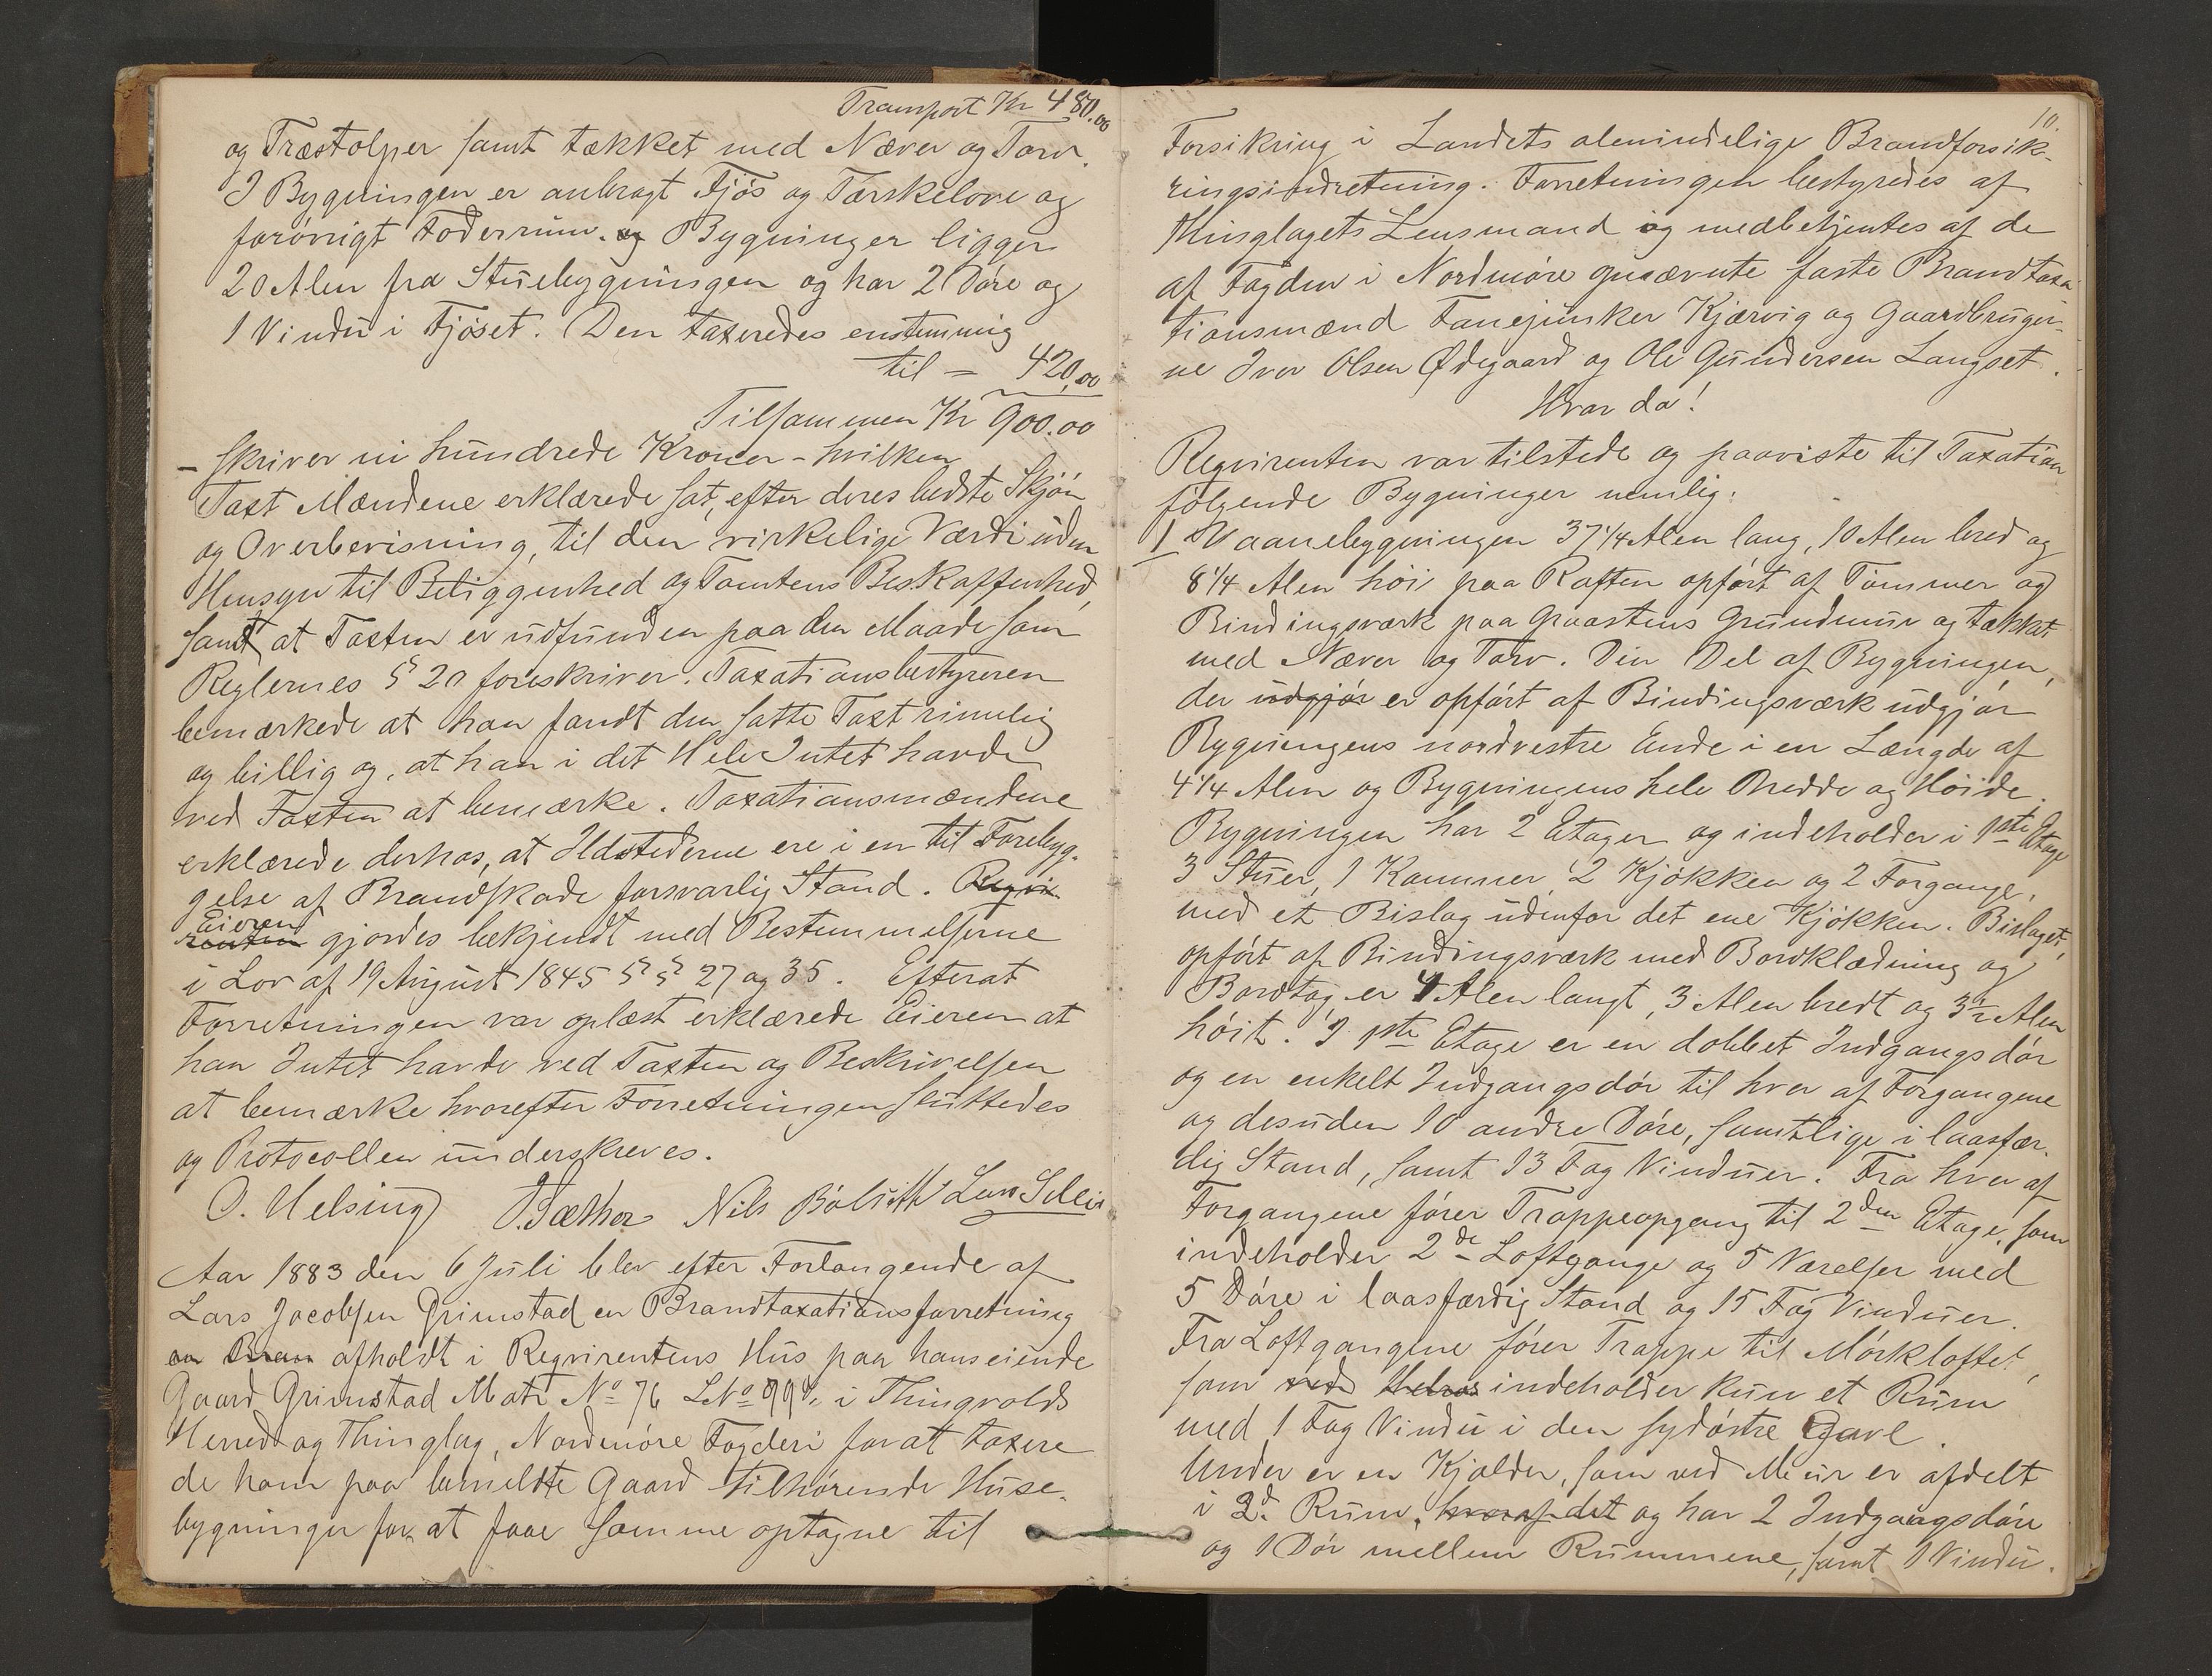 Transport Kr 480.00
og Træstolper samt tækket med Næver og Torv.
I Bygningen er anbragt Fjós og Tærskelove og
forövrigt Foderrum. og Bygninger ligger
20 Alen fra Stuebygningen og har 2 Döre og
1 Vindu i Fjöset. Den taxeredes enstemmig
til = 420,00
Tilsammen Kr 900.00
- skriver ni hundrede Kroner - hvilken
Taxt Mændene erklærede sat, efter deres bedste Skjön
og Overbevisning, til den virkelige Værdi uden
Hensyn til Beliggenhed og Tomtens Beskaffenhed,
samt at Taxten er udfunden paa den Maade som
Reglernes § 20 foreskriver. Taxationsbestyreren
bemærkede at han fandt den satte Taxt rimelig
og billig og, at han i det Hele Intet havde
ved Taxten at bemærke. Taxationsmændene
erklærede derhos, at Ildstederne ere i en til Forebyg-
gelse af Brandskade forsvarlig Stand. Reqvi-
Eieren
renten gjordes bekjendt med Bestemmelserne
i Lov af 19 August 1845 §§ 27 og 35. Efterat
Forretningen var oplæst erklærede Eieren at
han Intet havde ved Taxten og Beskrivelsen
at bemærke hvorefter Forretningen sluttedes
og Protocollen underskreves.
O. Helsing J. Sæther Nils Lars
Aar 1883 den 6 Juli blev efter Forlangende af
Lars Jacobsen Grimstad en Brandtaxationsforretning
en Bran afholdt i Reqvirentens Hus paa hans eiende
Gaard Grimstad Matr No 76 LNo 99 i Thingvolds
Herred og Thinglag, Nordmöre Fogderi for at taxere
de ham paa bemeldte Gaard tilhörende Huse-
bygninger for at faae samme optagne til
10.
Forsikring i Landets almindelige Brandforsik-
ringsindretning. Forretningen bestyredes af
Thinglagets Lensmand og medbetjentes af de
af Fogden i Nordmöre opnævnte faste Brandtaxa-
tionsmænd Fanejunker Kjærvig og Gaardbruger-
ne Iver Olsen Ødegaard og Ole Gundersen Langset.
Hvor da!
Reqvirenten var tilstede og paaviste til Taxation
fölgende Bygninger nemlig:
1 Vaanebygningen 37 1/4 Alen lang, 10 Alen bred og
8 1/4 Alen höi paa Raften opfört af Tömmer og
Bindingsværk paa Graastens Grundmur og tækket
med Næver og Torv. Den Del af Bygningen,
der udgjör er opfört af Bindingsværk udgjör
Bygningens nordvestre Ende i en Længde af
4 1/4 Alen og Bygningens hele Bredde og Höide.
Bygningen har 2 Etager og indeholder i 1ste Etage
3 Stuer, 1 Kammer, 2 Kjökken og 2 Forgange,
med et Bislag udenfor det ene Kjökken. Bislaget,
opfört af Bindingsværk med Bordklædning og
Bordtag er 4 Alen langt, 3 Alen bredt og 3 1/2 Alen
höit. I 1ste Etage er en dobbet Indgangsdör
og en enkelt Indgangsdör til hver af Forgangene
og desuden 10 andre Döre, samtlige i laasfær-
dig Stand, samt 13 Fag Vinduer. Fra hver af
Forgangene förer Trappeopgang til 2den Etage, som
indeholder 2de Loftgange og 5 Værelser med
5 Döre i laasfærdig Stand og 15 Fag Vinduer.
Fra Loftgangene förer Trappe til Mörkloftet,
som indeholder kun et Rum
med 1 Fag Vindu i den sydöstre Gavl.
Under er en Kjælder, som ved Mur er afdelt
i 2d. Rum, hvoraf det og har 2 Indgaagsdöre
og 1 Dör mellem Rummene, samt 1 Vindu.